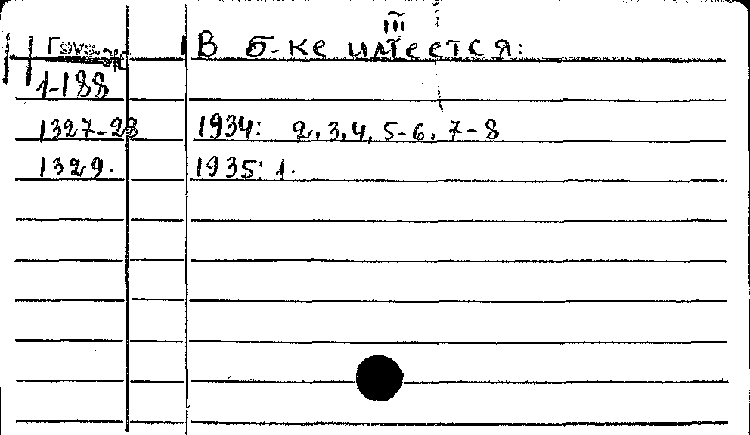 III
В б-ке имеется:
1-188
1327-28 1934: 2, 3, 4, 5-6, 7-8
1329. 1935: 1.